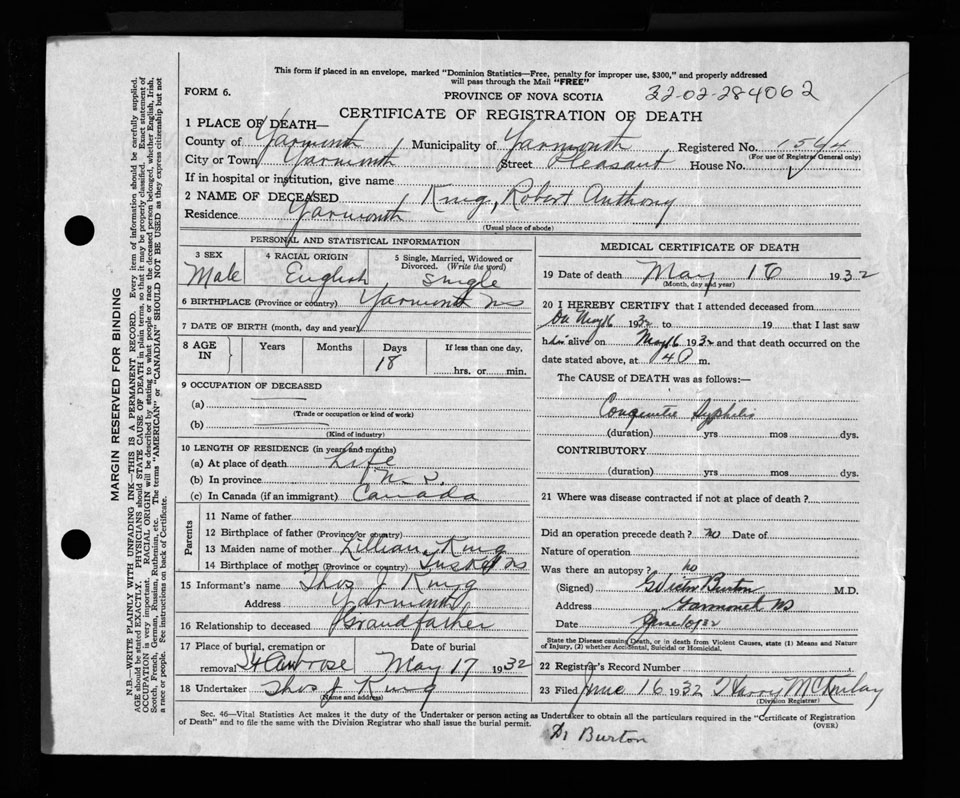 This form if placed in an envelope, marked "Dominion Statistics—Free, penalty for improper use, $300," and properly addressed
will pass through the Mail "FREE"
FORM 6.
PROVINCE OF NOVA SCOTIA
32-02-284062
CERTIFICATE OF REGISTRATION OF DEATH
1 PLACE OF DEATH—
County of Yarmouth Municipality of Yarmouth Registered No. 1544
(For use of Registrar General only)
City or Town Yarmouth Street Pleasant House No.
If in hospital or institution, give name
2 NAME OF DECEASED King, Robert Anthony
Residence Yarmouth
(Usual place of abode)
PERSONAL AND STATISTICAL INFORMATION
3 SEX Male
4 RACIAL ORIGIN English
5 Single, Married, Widowed or Divorced. (Write the word) Single
6 BIRTHPLACE (Province or country) Yarmouth NS
7 DATE OF BIRTH (month, day and year)
8 AGE IN Years Months Days 18 If less than one day, hrs. or min.
9 OCCUPATION OF DECEASED
(a)
(Trade or occupation or kind of work)
(b)
(Kind of industry)
10 LENGTH OF RESIDENCE (in years and months)
(a) At place of death Life
(b) In province N. S.
(c) In Canada (if an immigrant) Canada
Parents
11 Name of father
12 Birthplace of father (Province or country)
13 Maiden name of mother Lillian King
14 Birthplace of mother (Province or country) Tusket NS
15 Informant's name Thos J King
Address Yarmouth
16 Relationship to deceased Grandfather
17 Place of burial, cremation or removal St Ambrose Date of burial May 17 1932
18 Undertaker Thos J King
(Name and address)
MEDICAL CERTIFICATE OF DEATH
19 Date of death May 16 1932
(Month, day and year)
20 I HEREBY CERTIFY that I attended deceased from
On May 16 1932 to 19 that I last saw
him alive on May 16 1932 and that death occurred on the
date stated above, at 4 P m.
The CAUSE of DEATH was as follows:—
Congenital Syphilis
(duration) yrs mos dys.
CONTRIBUTORY
(duration) yrs mos dys.
21 Where was disease contracted if not at place of death?
Did an operation precede death? no Date of
Nature of operation
Was there an autopsy? no
(Signed) Burton M.D.
Address Yarmouth NS
Date June 10 1932
State the Disease causing Death, or in death from Violent Causes, state (1) Means and Nature
of Injury, (2) whether Accidental, Suicidal or Homicidal.
22 Registrar's Record Number
23 Filed June 16 1932 Harry McKinlay
(Division Registrar)
Sec. 46—Vital Statistics Act makes it the duty of the Undertaker or person acting as Undertaker to obtain all the particulars required in the "Certificate of Registration
of Death" and to file the same with the Division Registrar who shall issue the burial permit.
(OVER)
Dr Burton
MARGIN RESERVED FOR BINDING
N.B.—WRITE PLAINLY WITH UNFADING INK—THIS IS A PERMANENT RECORD. Every item of information should be carefully supplied.
AGE should be stated EXACTLY. PHYSICIANS should STATE CAUSE OF DEATH in plain terms, so that it may be properly classified. Exact statement of
OCCUPATION is very important. RACIAL ORIGIN will be described by stating to what people or race the deceased person belonged, whether English, Irish,
Scotch, French, German, Russian, Ruthenian, etc. The terms "AMERICAN" or "CANADIAN" SHOULD NOT BE USED as they express citizenship but not
a race or people. See instructions on back of Certificate.